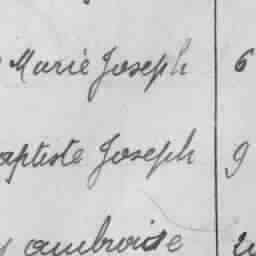 Marie Joseph 6
aptiste Joseph 9
ambroise